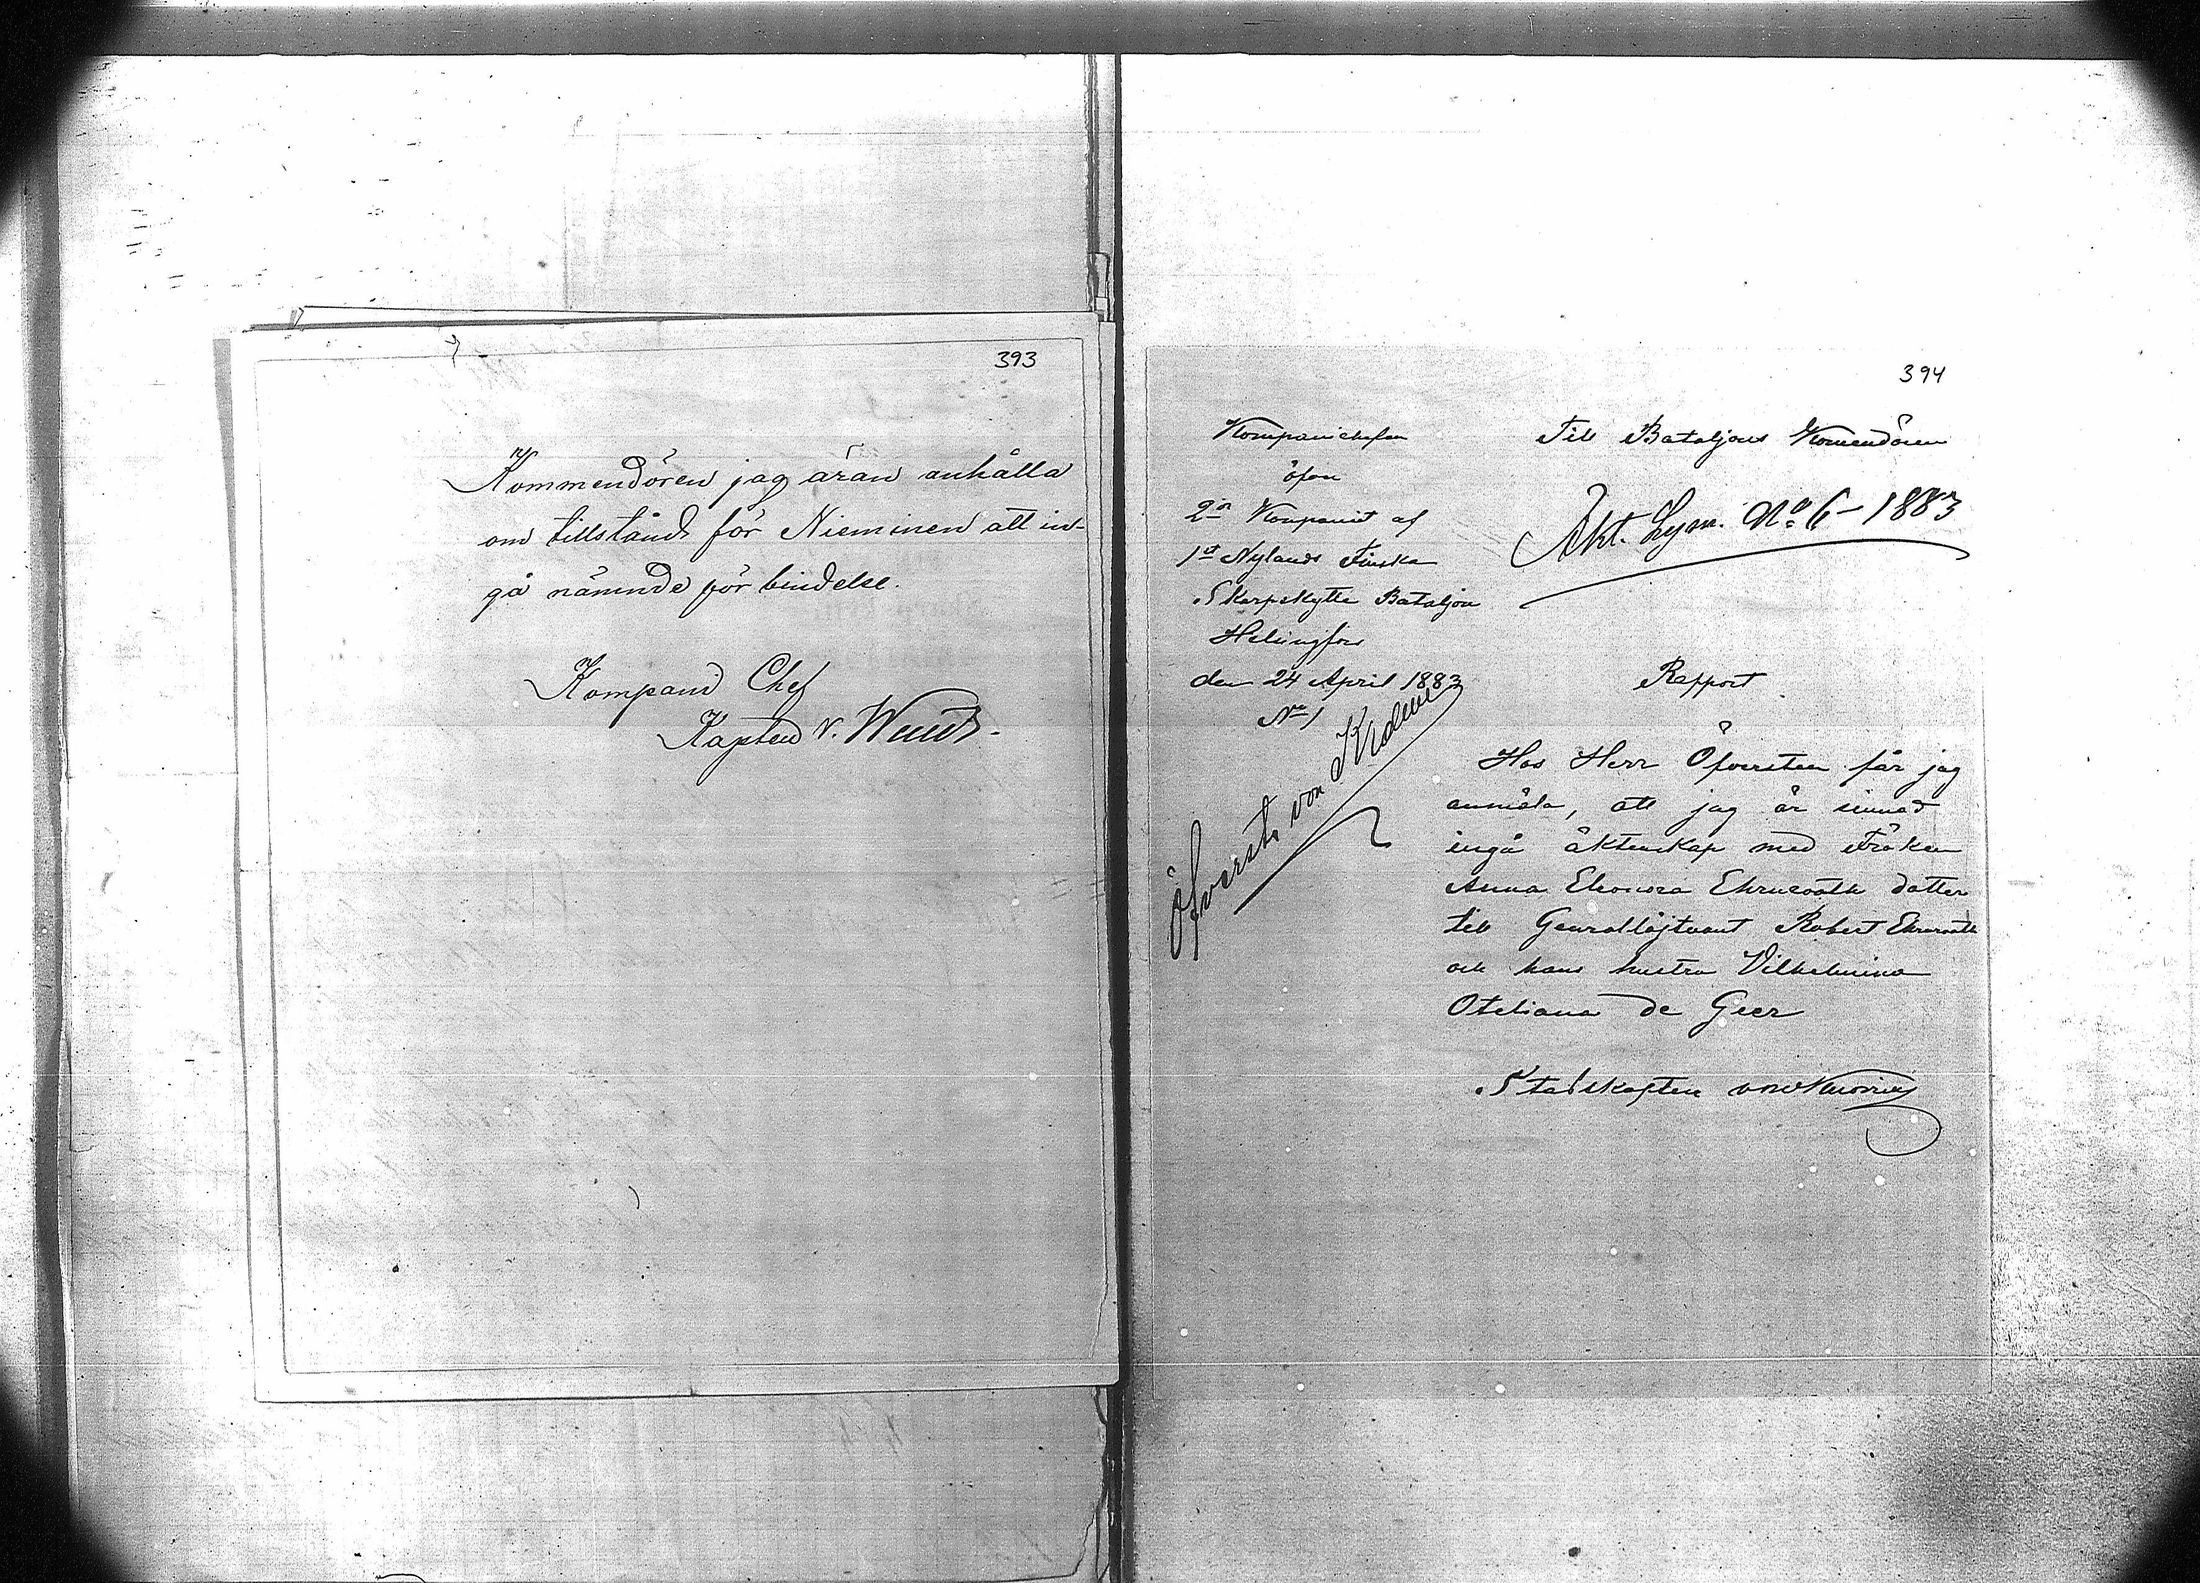 393
Kommendören jag äran anhålla
om tillstånd för Nieminen att in-
gå nämnde förbindelse.
Kompani Chef
Kapten v.
394
Kompanichefen
öfver
2dn Kompanit af
1st Nylands Finska
Skarpskytte Bataljon
Helsingfors
den 24 April 1883
No 1
Öfverste von
Till Bataljons Komendören
Äkt. Lysn. No 6 - 1883
Rapport
Hos Herr Öfversten får jag
anmäla, att jag är sinnad
ingå äktenskap med Fröken
Anna Eleonora Ehrnrooth dotter
till Generallöjtnant Robert Ehrnrooth
och hans hustru Vilhelmina
Oteliana de Geer
Stabskapten von